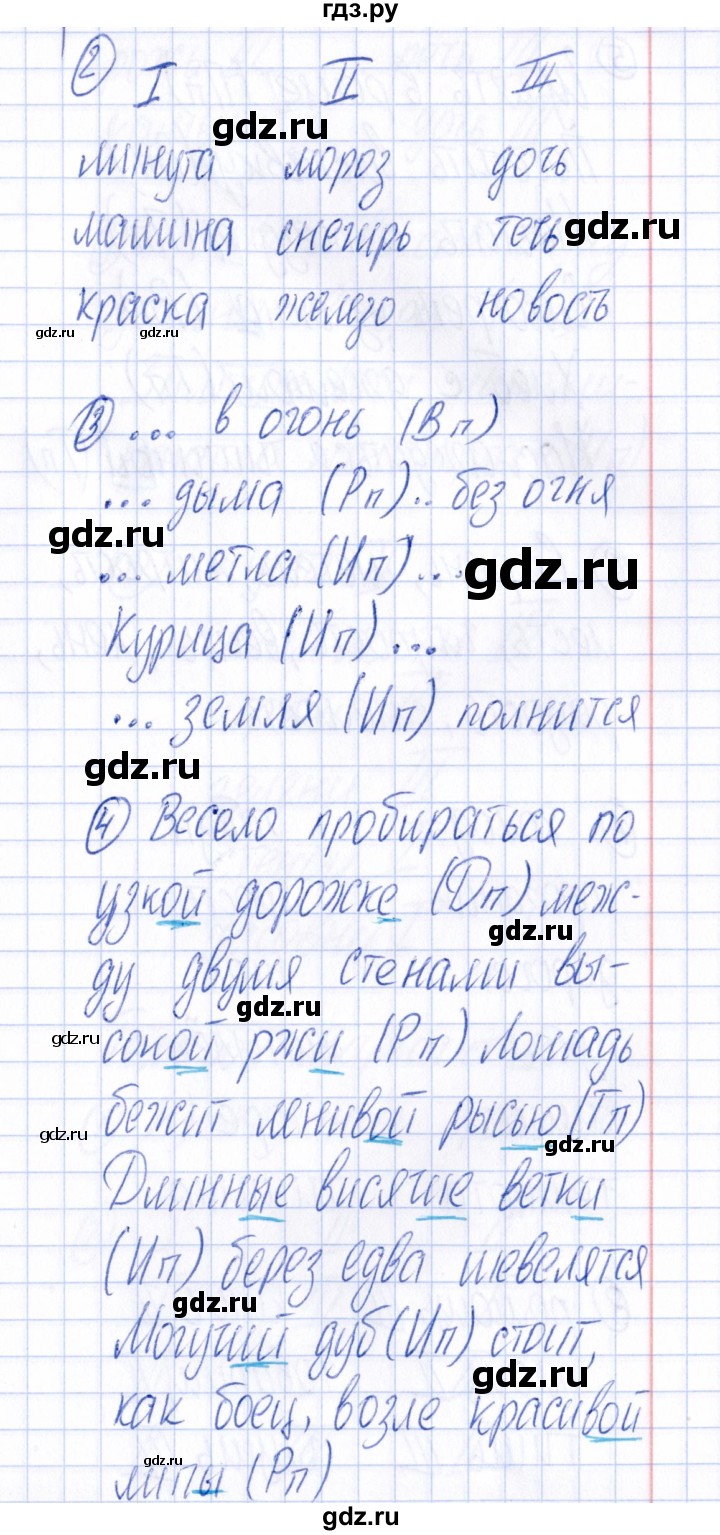 гдз.ру
② I II III
gdz.ru
минута мороз дочь
машина снегирь течь
gdz.ru
краска железо новость
gdz.ru gdz.ru
③ ... в огонь (Вп)
... дыма (Рп).. без огня
gdz.ru
... метла (Ип)...
gdz.ru
Курица (Ип)...
... земля (Ип) полнится
gdz.ru
④ Весело пробираться по
узкой дорожке (Дп) меж-
gdz.ru
ду двумя стенами вы-
gdz.ru
gdz.ru
сокой ржи (Рп) Лошадь
бежит ленивой рысью (Тп)
gdz.ru
gdz.ru
Длинные висячие ветки
(Ип) берез едва шевелятся
gdz.ru
Могучий дуб (Ип) стоит,
gdz.ru
как боец, возле красивой
gdz.ru
липы (Рп)
gdz.ru